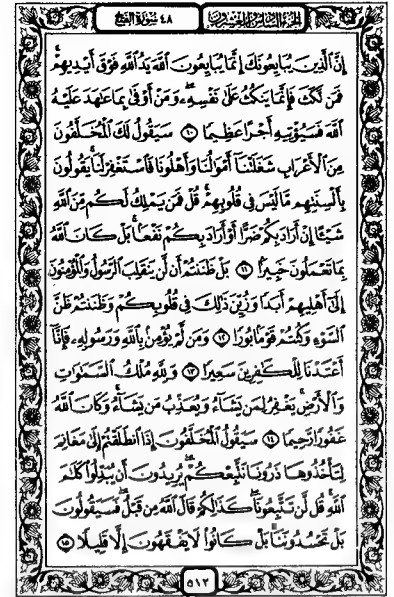 الجزء السادس والعشرون ٤٨ سورة الفتح
إِنَّ ٱلَّذِينَ يُبَايِعُونَكَ إِنَّمَا يُبَايِعُونَ ٱللَّهَ يَدُ ٱللَّهِ فَوْقَ أَيْدِيهِمْ ۚ
فَمَن نَّكَثَ فَإِنَّمَا يَنكُثُ عَلَىٰ نَفْسِهِۦ ۖ وَمَنْ أَوْفَىٰ بِمَا عَـٰهَدَ عَلَيْهُ
ٱللَّهَ فَسَيُؤْتِيهِ أَجْرًا عَظِيمًا ١٠ سَيَقُولُ لَكَ ٱلْمُخَلَّفُونَ
مِنَ ٱلْأَعْرَابِ شَغَلَتْنَآ أَمْوَٰلُنَا وَأَهْلُونَا فَٱسْتَغْفِرْ لَنَا ۚ يَقُولُونَ
بِأَلْسِنَتِهِم مَّا لَيْسَ فِى قُلُوبِهِمْ ۚ قُلْ فَمَن يَمْلِكُ لَكُم مِّنَ ٱللَّهِ
شَيْـًٔا إِنْ أَرَادَ بِكُمْ ضَرًّا أَوْ أَرَادَ بِكُمْ نَفْعًۢا ۚ بَلْ كَانَ ٱللَّهُ
بِمَا تَعْمَلُونَ خَبِيرًۢا ١١ بَلْ ظَنَنتُمْ أَن لَّن يَنقَلِبَ ٱلرَّسُولُ وَٱلْمُؤْمِنُونَ
إِلَىٰٓ أَهْلِيهِمْ أَبَدًا وَزُيِّنَ ذَٰلِكَ فِى قُلُوبِكُمْ وَظَنَنتُمْ ظَنَّ
ٱلسَّوْءِ وَكُنتُمْ قَوْمًۢا بُورًا ١٢ وَمَن لَّمْ يُؤْمِنۢ بِٱللَّهِ وَرَسُولِهِۦ فَإِنَّآ
أَعْتَدْنَا لِلْكَـٰفِرِينَ سَعِيرًا ١٣ وَلِلَّهِ مُلْكُ ٱلسَّمَـٰوَٰتِ
وَٱلْأَرْضِ ۚ يَغْفِرُ لِمَن يَشَآءُ وَيُعَذِّبُ مَن يَشَآءُ ۚ وَكَانَ ٱللَّهُ
غَفُورًا رَّحِيمًا ١٤ سَيَقُولُ ٱلْمُخَلَّفُونَ إِذَا ٱنطَلَقْتُمْ إِلَىٰ مَغَانِمَ
لِتَأْخُذُوهَا ذَرُونَا نَتَّبِعْكُمْ ۖ يُرِيدُونَ أَن يُبَدِّلُوا۟ كَلَـٰمَ
ٱللَّهِ ۚ قُل لَّن تَتَّبِعُونَا ۖ كَذَٰلِكُمْ قَالَ ٱللَّهُ مِن قَبْلُ ۖ فَسَيَقُولُونَ
بَلْ تَحْسُدُونَنَا ۚ بَلْ كَانُوا۟ لَا يَفْقَهُونَ إِلَّا قَلِيلًا ١٥
٥١٢